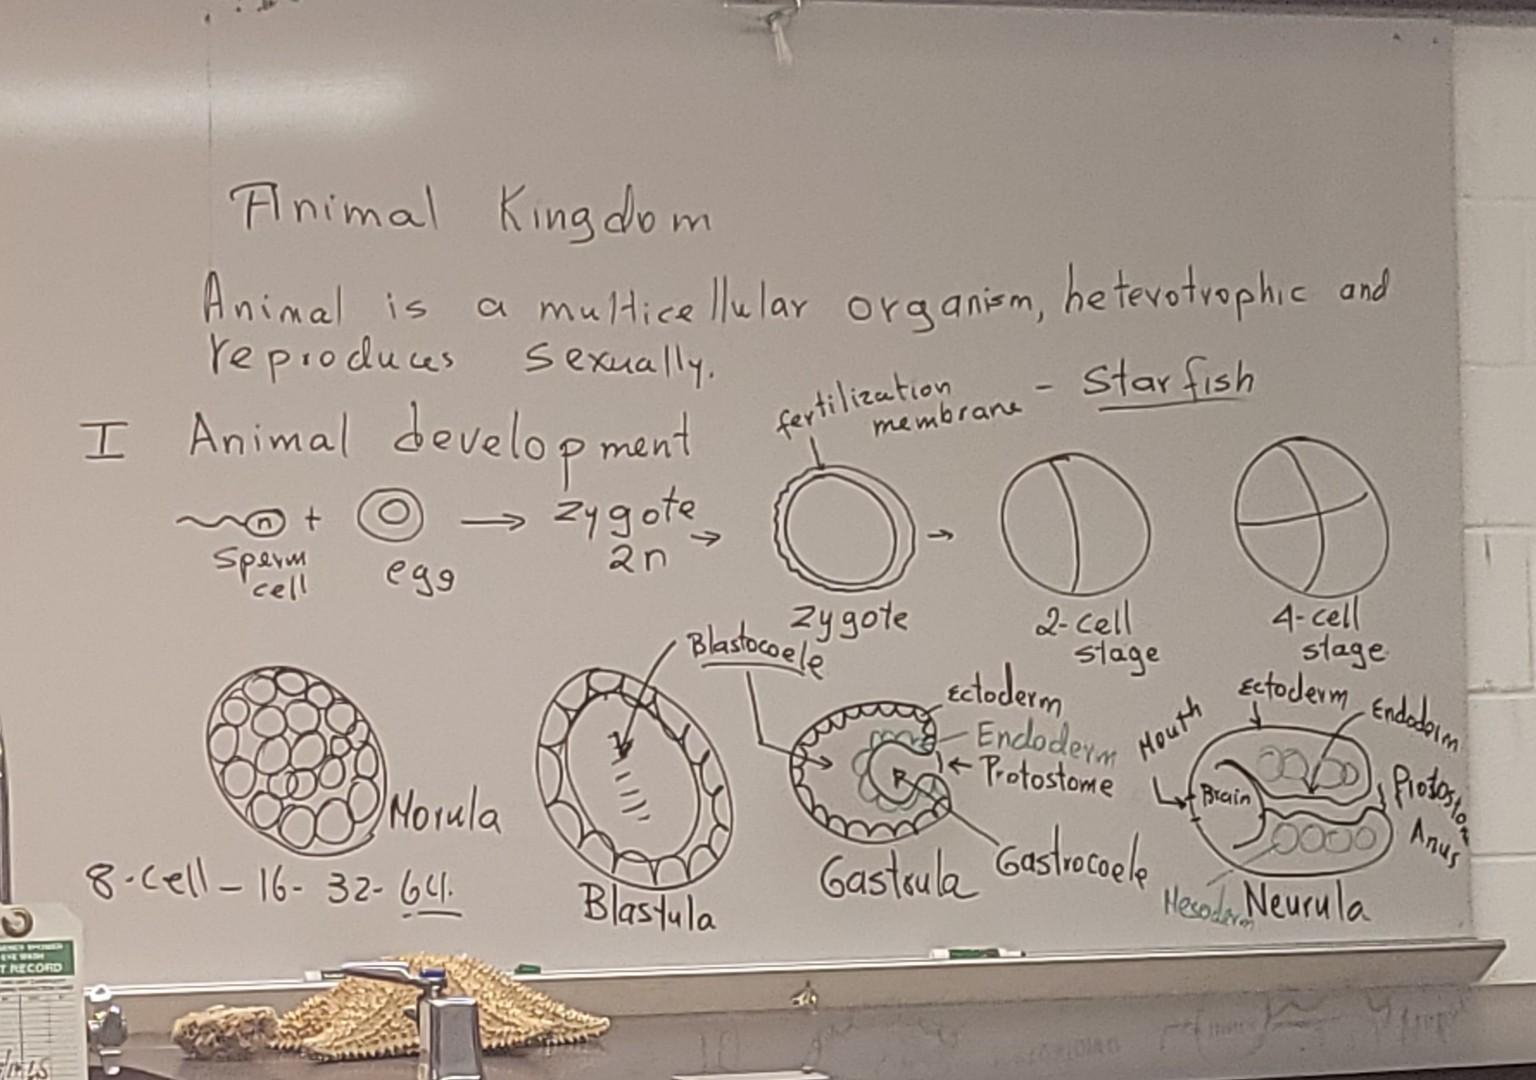 Animal Kingdom
Animal is a multicellular organism, heterotrophic and
reproduces sexually.
fertilization
membrane - Starfish
I Animal development
n + → zygote
2n →
sperm
cell
egg
zygote
2-cell
stage
4-cell
stage
Blastocoele
Morula
8-cell - 16- 32- 64.
Blastula
Ectoderm
Endoderm
← Protostome
Gastrocoele
Gastrula
Mouth
Ectoderm
Endoderm
Brain
Anus
Mesoderm
Neurula
T RECORD